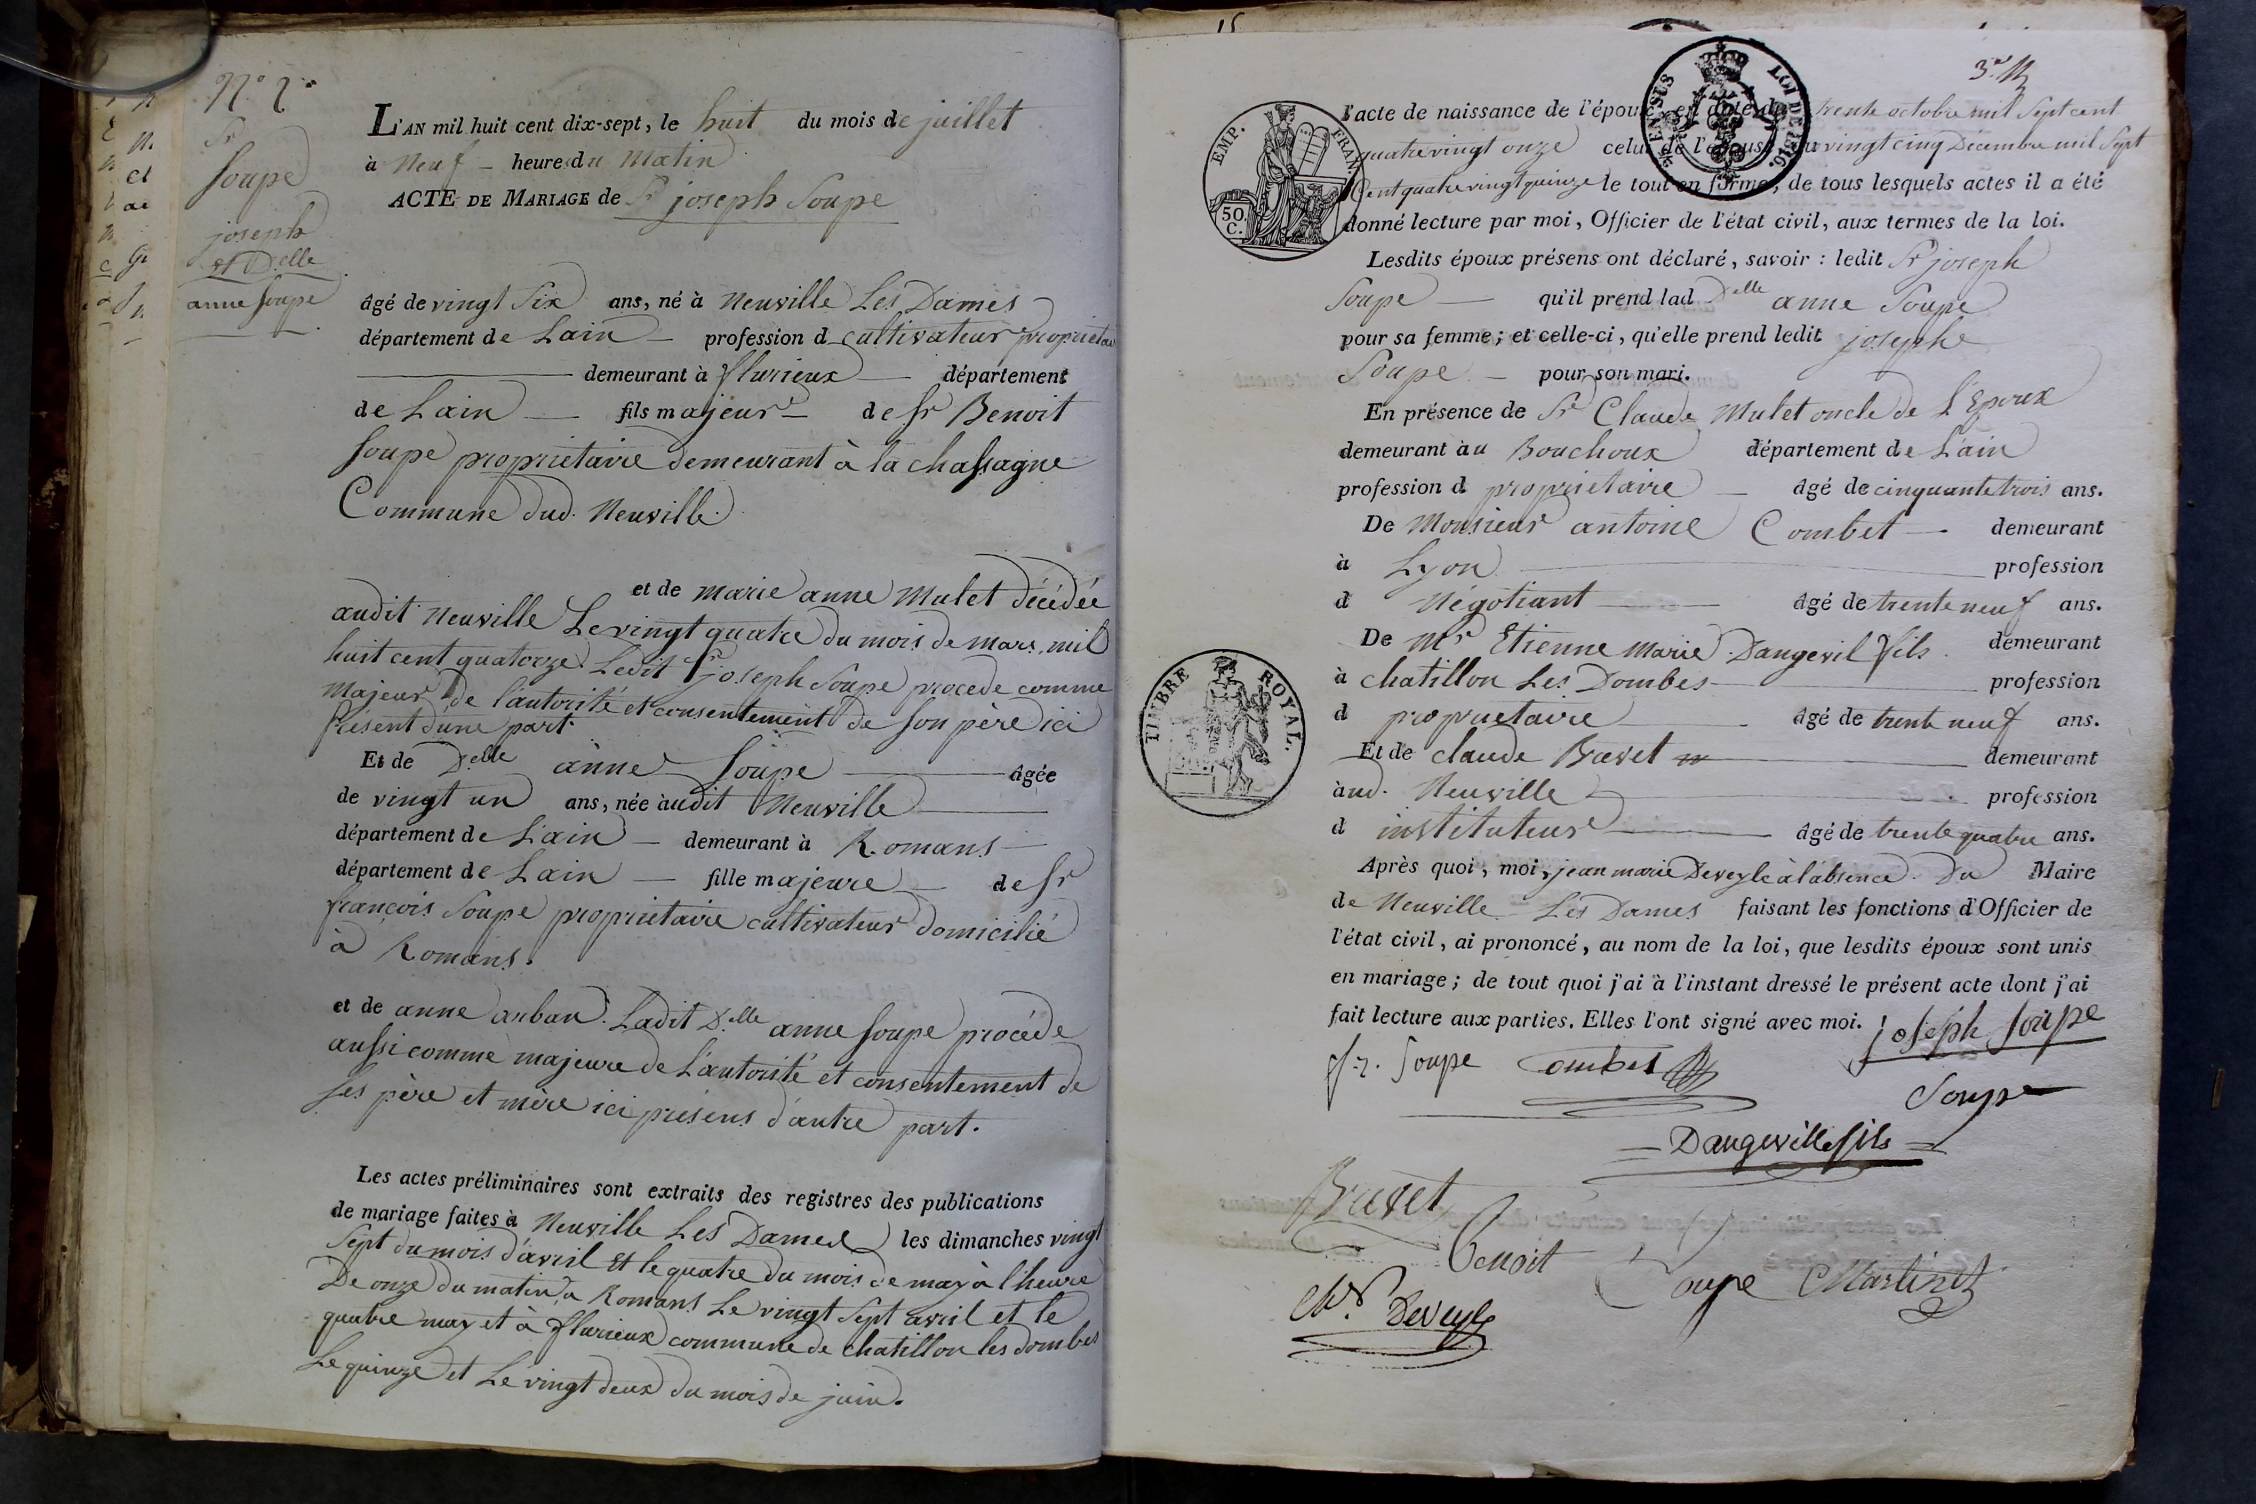 N° 2
Sr
Soupe
joseph
et D.elle
anne Soupe
L'AN mil huit cent dix-sept, le huit du mois de juillet
à Neuf heure du Matin
ACTE DE MARIAGE de Sr joseph Soupe
âgé de vingt Six ans, né à Neuville Les Dames
département de Lain profession d cultivateur propriétaire
demeurant à flurieux département
de Lain fils majeur de Sr Benoit
Soupe propriétaire demeurant à la chassagne
Commune dud. Neuville.
et de marie anne Mulet décédée
audit Neuville Le vingt quatre du mois de mars mil
huit cent quatorze. Ledit Sr joseph Soupe procede comme
Majeur de l'autorité et consentement de son père ici
présent d'une part
Et de D.elle anne Soupe âgée
de vingt un ans, née audit Neuville
département de Lain demeurant à Romans
département de Lain fille majeure de Sr
françois Soupe propriétaire cultivateur domicilié
à Romans.
et de anne arban. Ladit D.elle anne Soupe procéde
aussi comme majeure de L'autorité et consentement de
Ses père et mère ici présens d'autre part.
Les actes préliminaires sont extraits des registres des publications
de mariage faites à Neuville Les Dames les dimanches vingt
Sept du mois d'avril Et le quatre du mois de may à l'heure
De onze du matin, à Romans Le vingt Sept avril et le
quatre may et à flurieux commune de chatillon les dombes
Le quinze et Le vingt deux du mois de juin.
15
3.e
EMP. FRAN.
50 C.
LOI DE 1816.
l'acte de naissance de l'époux, en date du trente octobre mil Sept cent
quatre vingt onze celui de l'épouse du vingt cinq Décembre mil Sept
Cent quatre vingt quinze le tout en forme, de tous lesquels actes il a été
donné lecture par moi, Officier de l'état civil, aux termes de la loi.
Lesdits époux présens ont déclaré, savoir : ledit Sr joseph
Soupe qu'il prend lad D.elle anne Soupe
pour sa femme ; et celle-ci, qu'elle prend ledit joseph
Soupe pour son mari.
En présence de Sr Claude Mulet oncle de L'Epoux
demeurant au Bouchoux département de Lain
profession d propriétaire âgé de cinquante trois ans.
De Monsieur antoine Combet demeurant
à Lyon profession
d Négotiant âgé de trente neuf ans.
De Mr Etienne Marie Dangevil fils demeurant
à chatillon Les Dombes profession
d propriétaire âgé de trente neuf ans.
Et de claude Brevet demeurant
aud. Neuville profession
d instituteur âgé de trente quatre ans.
Après quoi, moi, jean marie Deveyle à l'absence Du Maire
de Neuville Les Dames faisant les fonctions d'Officier de
l'état civil, ai prononcé, au nom de la loi, que lesdits époux sont unis
en mariage ; de tout quoi j'ai à l'instant dressé le présent acte dont j'ai
fait lecture aux parties. Elles l'ont signé avec moi. joseph soupe
fr. Soupe Combet
Soupe
TIMBRE ROYAL.
Dangeville fils
Brevet
Benoit Soupe Martinet
Deveyle